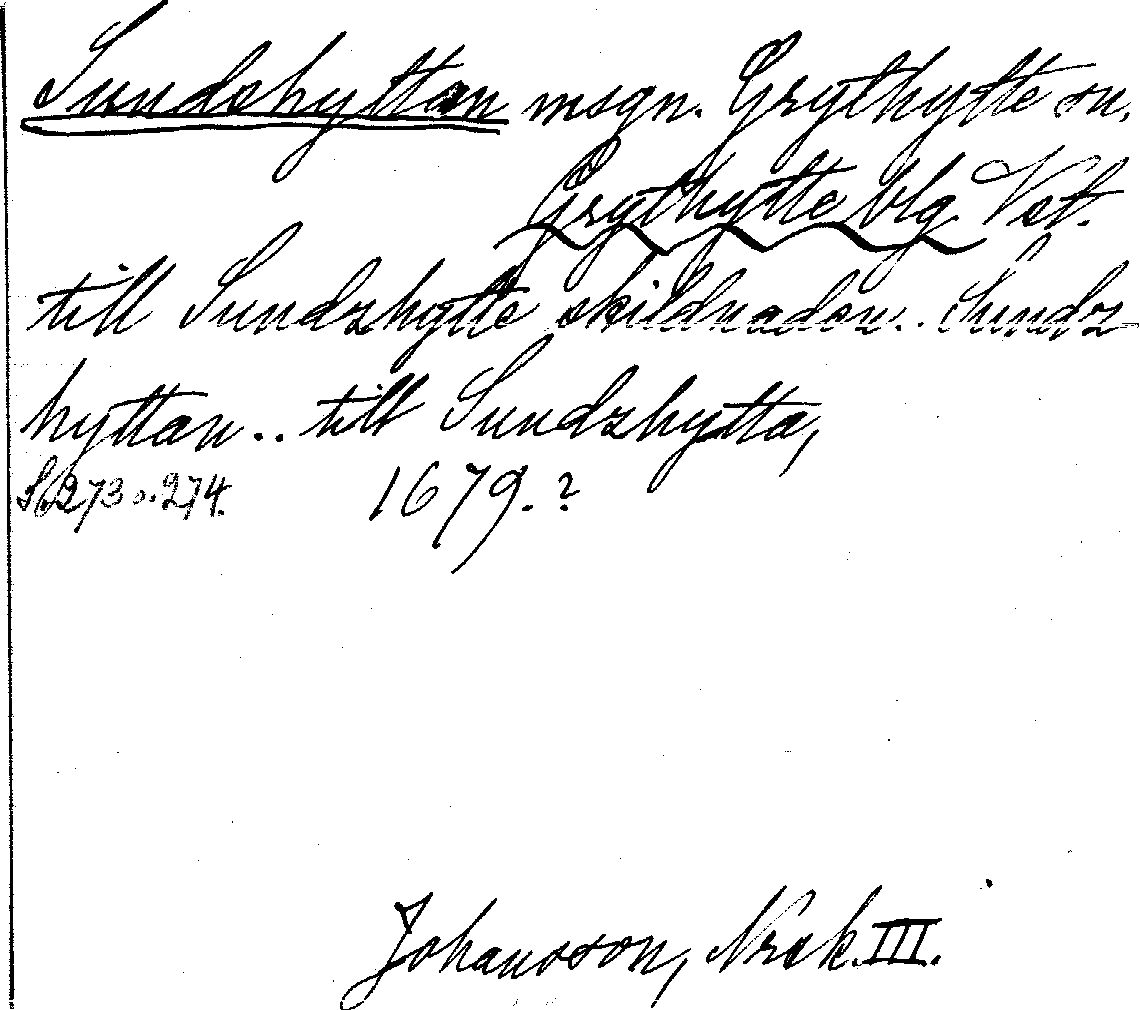 Sundshyttan msgn. Grythytte sn.
Grythytte blg Vst.
till Sundzhytte skildnaden.. Sundz
hyttan.. till Sundzhytta,
S. 273 o. 274. 1679.?
Johansson, Nrsk. III.